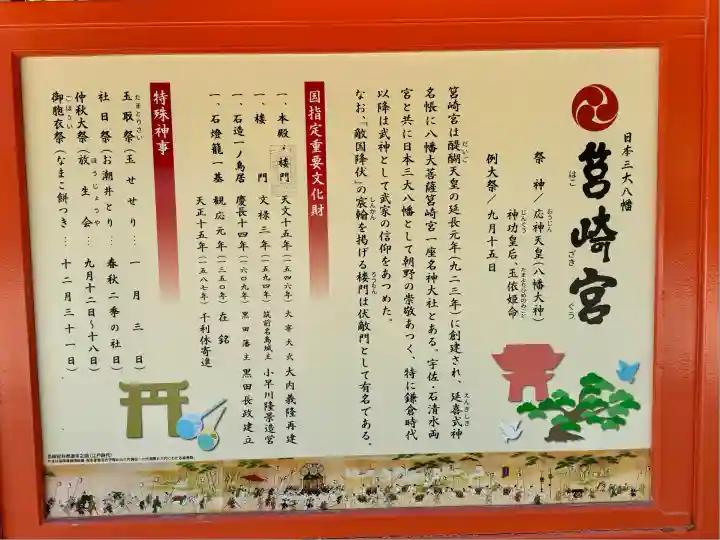 日本三大八幡
筥崎宮
はこ ざき ぐう
祭 神／応神天皇（八幡大神）
おうじん
神功皇后、玉依姫命
じんぐう たまよりひめのみこと
例大祭／九月十五日
筥崎宮は醍醐天皇の延長元年（九二三年）に創建され、延喜式神
だいご えんぎしき
名帳に八幡大菩薩筥崎宮一座名神大社とある。宇佐・石清水両
宮と共に日本三大八幡として朝野の崇敬あつく、特に鎌倉時代
以降は武神として武家の信仰をあつめた。
なお、「敵国降伏」の宸翰を掲げる楼門は伏敵門として有名である。
しんかん ろうもん
国指定重要文化財
一、本殿・楼門 天文十五年（一五四六年）大宰大弐 大内義隆再建
一、楼 門 文禄三年（一五九四） 筑前名島城主 小早川隆景造営
一、石造一ノ鳥居 慶長十四年（一六〇九年） 黒田藩主 黒田長政建立
一、石燈籠一基 観応元年（一三五〇年）在 銘
天正十五年（一五八七年）千利休寄進
特殊神事
玉取祭（玉せせり… 一月三日）
たまとりさい
社日祭（お潮井とり… 春秋二季の社日）
仲秋大祭（放生会… 九月十二日〜十八日）
ほうじょうや
御胞衣祭（なまこ餅つき… 十二月三十一日）
ごほうさい